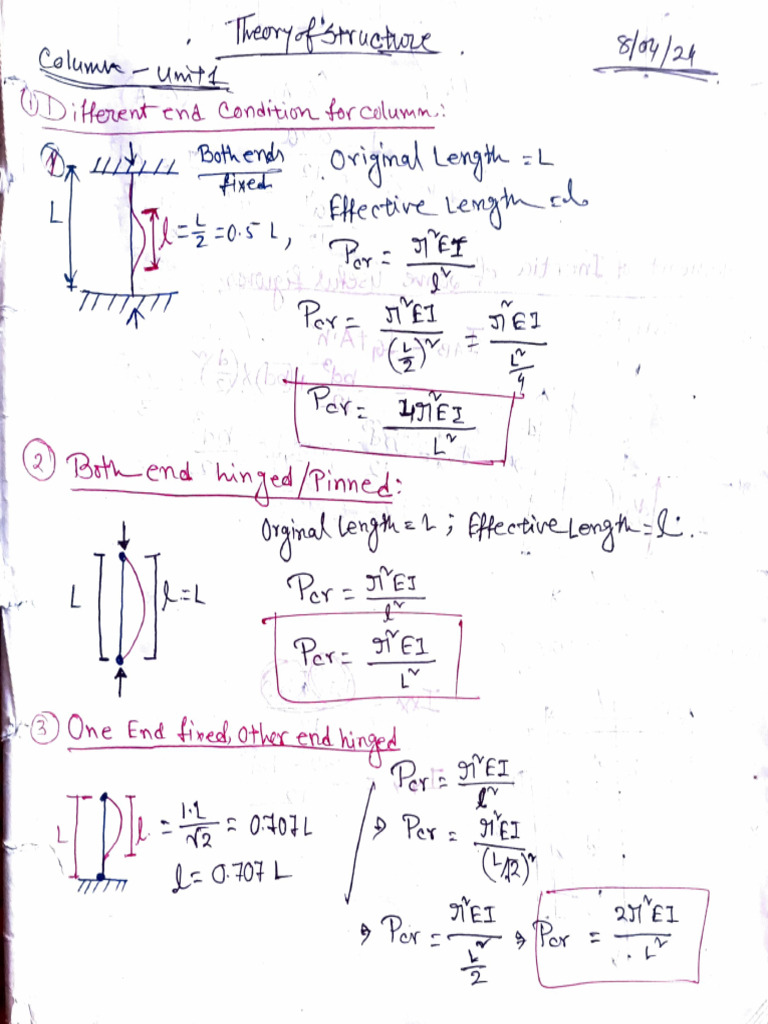 Theory of Structure
8/04/24
Column - Unit 1
① Different end Condition for column:
① Both ends fixed
Original Length = L
L
l = L/2 = 0.5 L,
Effective Length = l
Pcr = π²EI / l²
Pcr = π²EI / (L/2)² = π²EI / L²/4
Pcr = 4π²EI / L²
② Both end hinged/Pinned:
Orginal length = L ; Effective Length = l.
L
l = L
Pcr = π²EI / l²
Pcr = π²EI / L²
③ One End fixed, Other end hinged
Pcr = π²EI / l²
L
l = 1·L / √2 = 0.707L
⇒ Pcr = π²EI / (L/√2)²
l = 0.707 L
⇒ Pcr = π²EI / L²/2 ⇒ Pcr = 2π²EI / L²